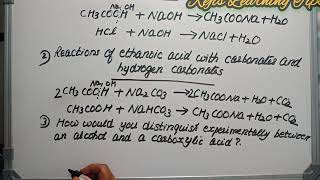 Keji's Learning Tips
Na OH
CH3COOH + NaOH → CH3COONa + H2O
HCl + NaOH → NaCl + H2O
② Reactions of ethanoic acid with carbonates and
hydrogen carbonates
Na OH
2CH3COOH + Na2CO3 → 2CH3COONa + H2O + CO2
CH3COOH + NaHCO3 → CH3COONa + H2O + CO2
③ How would you distinguist experimentally between
an alcohol and a carboxylic acid?.